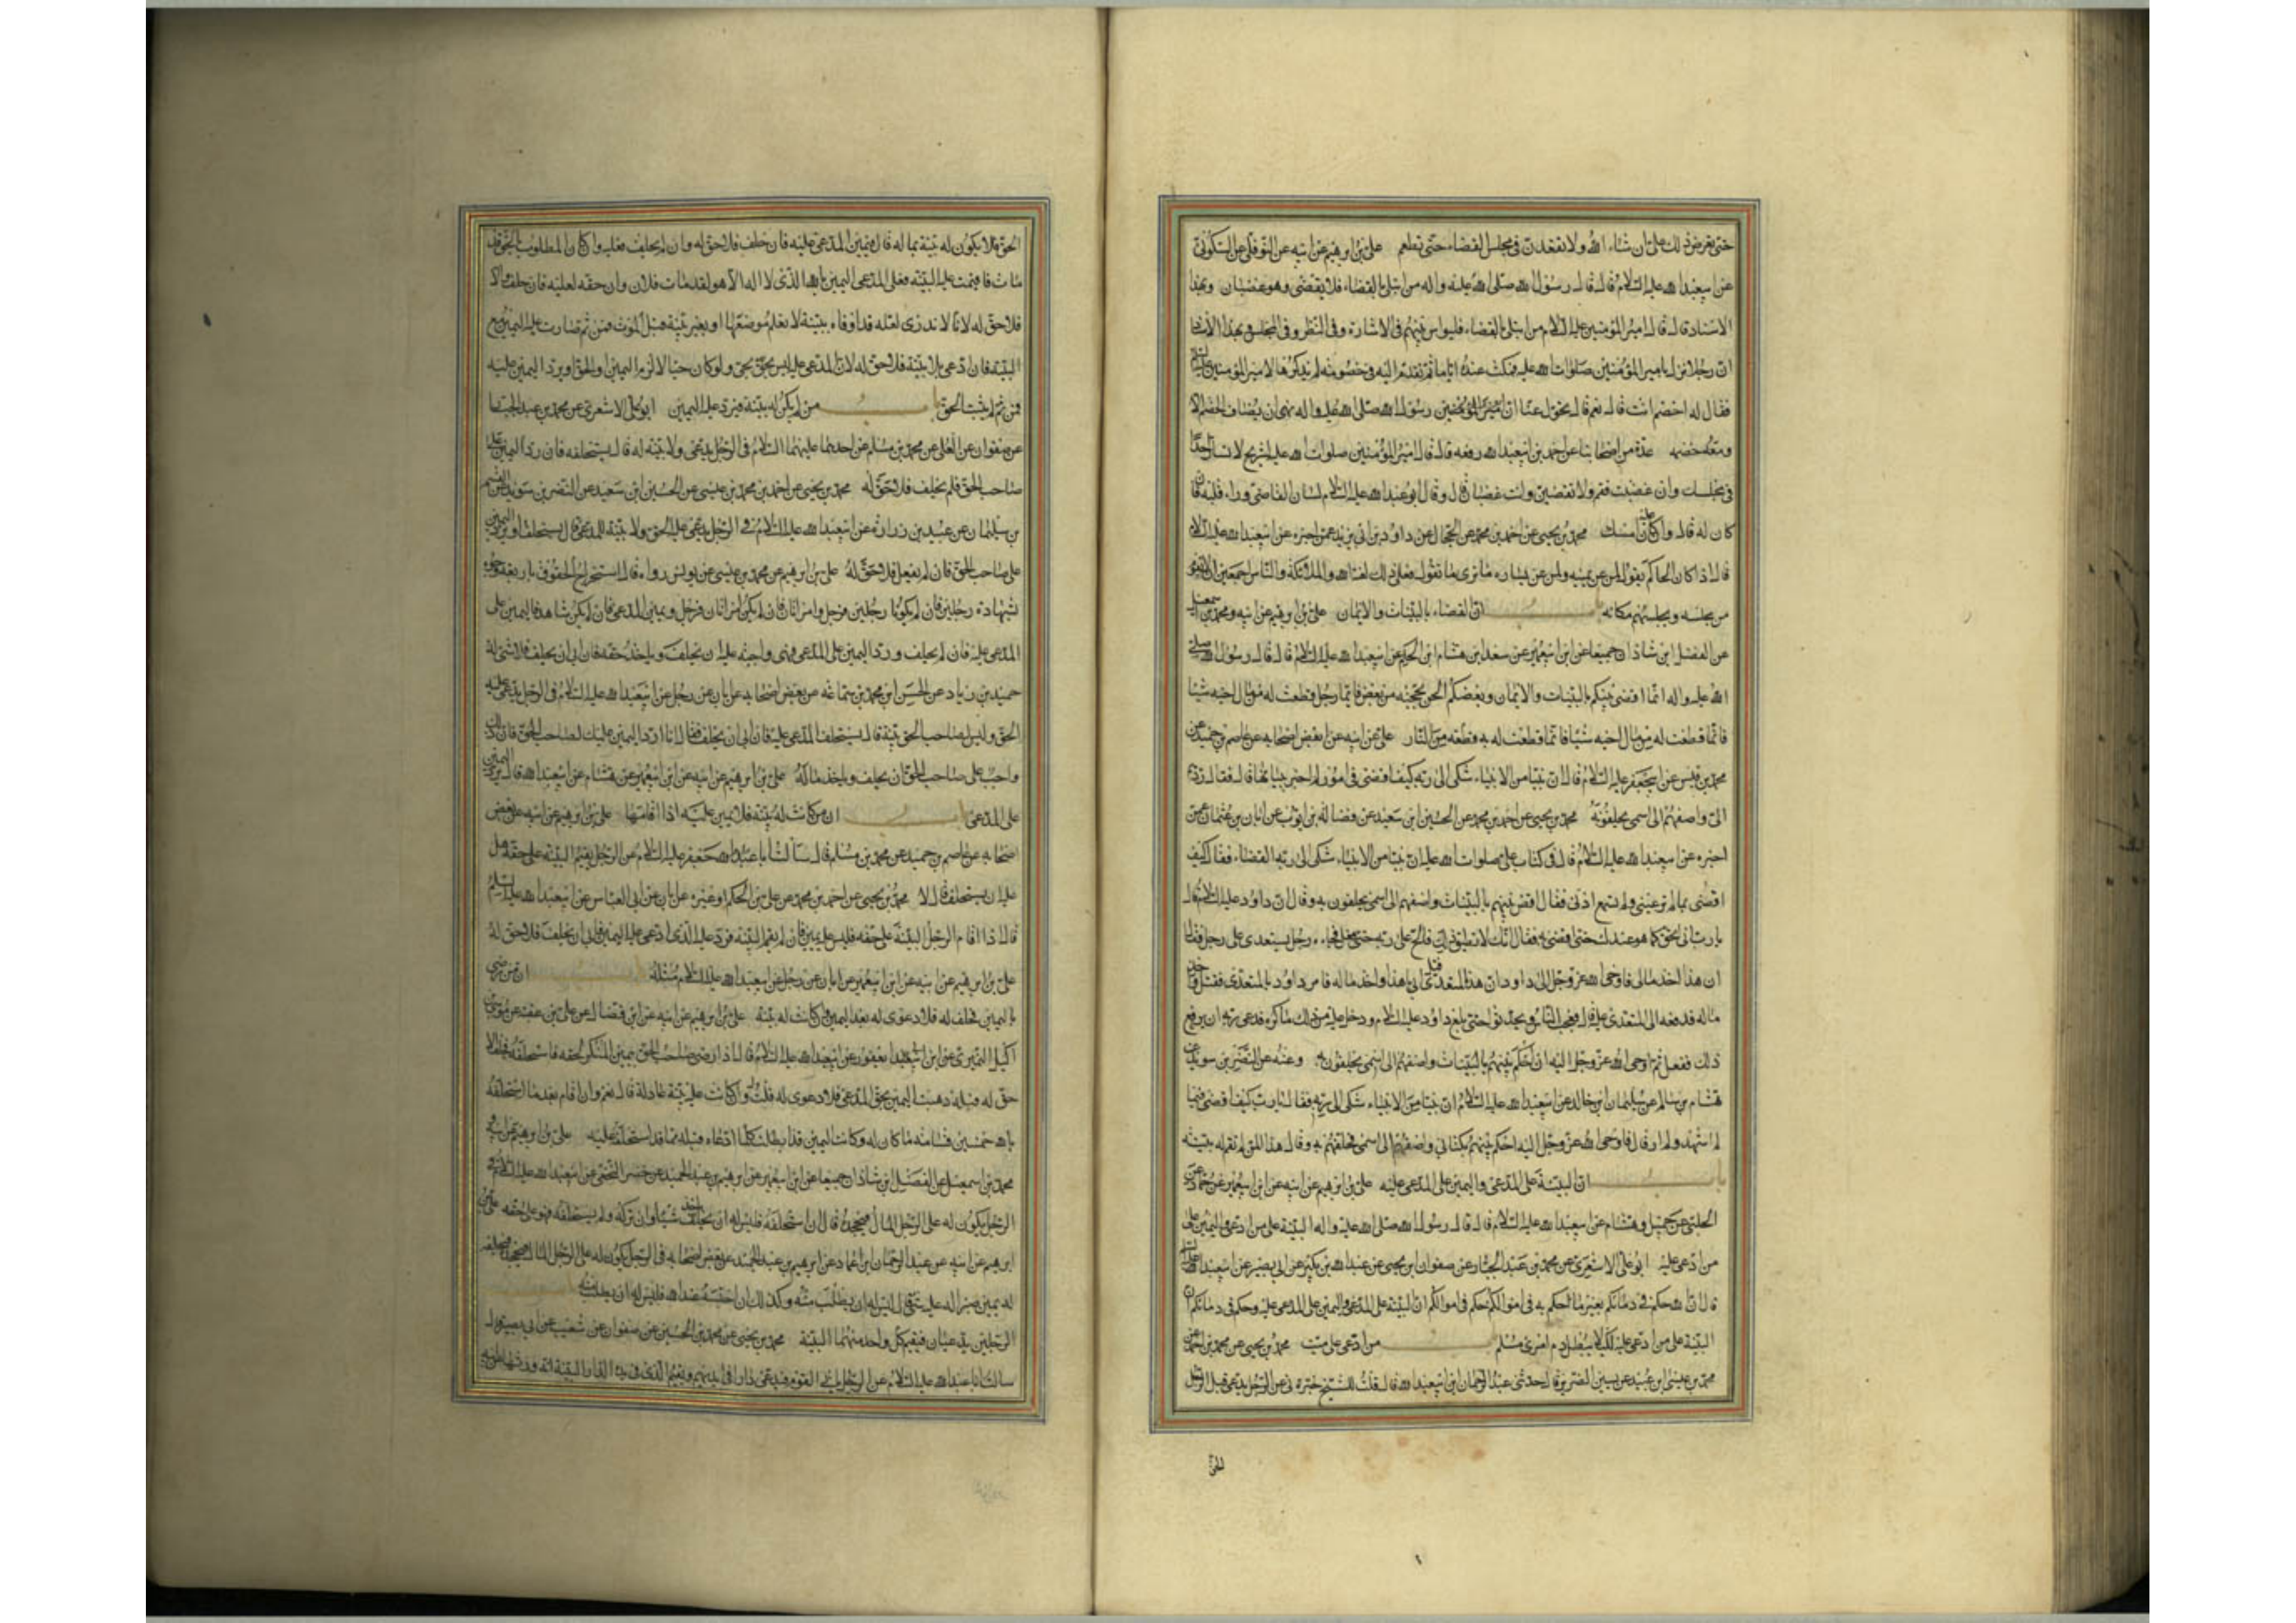 حتى تعرض ذلك علي ان شاء الله ولا تقعدن في مجلس القضاء حتى تطعم علي بن ابرهيم عن ابيه عن النوفلي عن السكوني
عن ابيعبدالله عليه السلام قال قال رسول الله صلى الله عليه واله من ابتلى بالقضاء فلا يقضي وهو غضبان وبهذا
الاسناد قال قال امير المؤمنين عليه السلام من ابتلى بالقضاء فليواس بينهم في الاشارة وفي النظر وفي المجلس وبهذا الاسناد
ان رجلا نزل بامير المؤمنين صلوات الله عليه فمكث عنده اياما ثم تقدم اليه في خصومة لم يذكرها لامير المؤمنين عليه السلم
فقال له اخصم انت قال نعم قال تحول عنا ان رسول الله صلى الله عليه واله نهى ان يضاف الخصم الا
ومعه خصمه عدة من اصحابنا عن احمد بن ابيعبدالله رفعه قال قال امير المؤمنين صلوات الله عليه لشريح لا تسار احدا
في مجلسك وان غضبت فقم ولا تقضين وانت غضبان قال وقال ابوعبدالله عليه السلام لسان القاضي وراء قلبه فان
كان له قال وان كان عليه امسك محمد بن يحيى عن احمد بن محمد عن الحجال عن داود بن ابي يزيد عمن اخبره عن ابيعبدالله عليه السلام
قال اذا كان الحاكم يقول لمن عن يمينه ولمن عن يساره ما ترى ما تقول فعلى ذلك لعنة الله والملائكة والناس اجمعين الا يقوم
من مجلسه ويجلسهم مكانه باب ان القضاء بالبينات والايمان علي بن ابرهيم عن ابيه ومحمد بن اسمعيل
عن الفضل ابن شاذان جميعا عن ابن ابيعمير عن سعد ابن هشام ابن الحكم عن ابيعبدالله عليه السلام قال قال رسول الله صلى
الله عليه واله انما اقضي بينكم بالبينات والايمان وبعضكم الحن بحجته من بعض فايما رجل قطعت له من مال اخيه شيئا
فانما قطعت له من مال اخيه شيئا فانما قطعت له به قطعة من النار علي عن ابيه عن بعض اصحابه عن عاصم بن حميد عن
محمد بن قيس عن ابيجعفر عليه السلام قال ان نبيا من الانبياء شكى الى ربه كيف اقضي في امور لم اخبر ببيانها قال فقال ردهم
الي واضفهم الى اسمي يحلفون به محمد بن يحيى عن احمد بن محمد عن الحسين ابن سعيد عن فضالة بن ايوب عن ابان بن عثمان عمن
اخبره عن ابيعبدالله عليه السلام قال في كتاب علي صلوات الله عليه ان نبيا من الانبياء شكى الى ربه القضاء فقال كيف
اقضي بما لم تر عيني ولم تسمع اذني فقال اقض بينهم بالبينات واضفهم الى اسمي يحلفون به وقال ان داود عليه السلام قال
يا رب ارني الحق كما هو عندك حتى اقضي به فقال انك لا تطيق ذلك فالح على ربه حتى فعل فجاءه رجل يستعدي على رجل فقال
ان هذا اخذ مالي فاوحى الله عز وجل الى داود ان هذا المستعدي قتل ابا هذا واخذ ماله فامر داود بالمستعدي فقتل واخذ
ماله فدفعه الى المستعدى عليه قال فعجب الناس وتحدثوا حتى بلغ داود عليه السلام ودخل عليه من ذلك ما كره فدعى ربه ان يرفع
ذلك ففعل ثم اوحى الله عز وجل اليه ان احكم بينهم بالبينات واضفهم الى اسمي يحلفون به وعنه عن النضر بن سويد عن
هشام بن سالم عن سليمان ابن خالد عن ابيعبدالله عليه السلام ان نبيا من الانبياء شكى الى ربه فقال يا رب كيف اقضي فيما
لم اشهد ولم ار قال فاوحى الله عز وجل اليه احكم بينهم بكتابي واضفهم الى اسمي فحلفهم به وقال هذا لمن لم تقم له بينة
باب ان البينة على المدعي واليمين على المدعى عليه علي بن ابرهيم عن ابيه عن ابن ابيعمير عن حماد عن
الحلبي عن جميل وهشام عن ابيعبدالله عليه السلام قال قال رسول الله صلى الله عليه واله البينة على من ادعى واليمين على
من ادعي عليه ابو علي الاشعري عن محمد بن عبد الجبار عن صفوان ابن يحيى عن عبدالله بن بكير عن ابي بصير عن ابيعبدالله عليه السلم
قال ان الله حكم في دمائكم بغير ما حكم به في اموالكم حكم في اموالكم ان البينة على المدعي واليمين على المدعى عليه وحكم في دمائكم ان
البينة على من ادعي عليه لكيلا يبطل دم امرئ مسلم باب من ادعى على ميت محمد بن يحيى عن محمد بن احمد عن
محمد بن عيسى ابن عبيد عن يسين الضرير قال حدثني عبد الرحمان ابن ابيعبدالله قال قلت للشيخ خبرني عن الرجل يدعي قبل الرجل
الحق
الحق فلا يكون له بينة بما له قال فيمين المدعى عليه فان حلف فلا حق له وان لم يحلف فعليه وان كان المطلوب بالحق قد
مات فاقيمت عليه البينة فعلى المدعي اليمين بالله الذي لا اله الا هو لقد مات فلان وان حقه لعليه فان حلف والا
فلا حق له لانا لا ندري لعله قد اوفاه ببينة لا نعلم موضعها او بغير بينة قبل الموت فمن ثم صارت عليه اليمين مع
البينة فان ادعى بلا بينة فلا حق له لان المدعى عليه ليس بحي ولو كان حيا لالزم اليمين او الحق او يرد اليمين عليه
فمن ثم لم يثبت الحق باب من لم يكن له بينة فيرد عليه اليمين ابو علي الاشعري عن محمد بن عبد الجبار
عن صفوان عن العلى عن محمد بن مسلم عن احدهما عليهما السلام في الرجل يدعي ولا بينة له قال يستحلفه فان رد اليمين على
صاحب الحق فلم يحلف فلا حق له محمد بن يحيى عن احمد بن محمد بن عيسى عن الحسين ابن سعيد عن النضر بن سويد عن القسم
بن سليمان عن عبيد بن زرارة عن ابيعبدالله عليه السلام في الرجل يدعى عليه الحق ولا بينة للمدعي قال يستحلف او يرد اليمين
على صاحب الحق فان لم يفعل فلا حق له علي بن ابرهيم عن محمد بن عيسى عن يونس رواه قال استخراج الحقوق باربعة وجوه
شهادة رجلين فان لم يكونا رجلين فرجل وامراتان فان لم يكن امراتان فرجل ويمين المدعي فان لم يكن شاهد فاليمين على
المدعى عليه فان لم يحلف ورد اليمين على المدعي فهي واجبة عليه ان يحلف وياخذ حقه فان ابى ان يحلف فلا شيء له
حميد بن زياد عن الحسن ابن محمد بن سماعة عن بعض اصحابه عن ابان عن رجل عن ابيعبدالله عليه السلام في الرجل يدعى عليه
الحق وليس لصاحب الحق بينة قال يستحلف المدعى عليه فان ابى ان يحلف فقال انا ارد اليمين عليك لصاحب الحق فان ذلك
واجب على صاحب الحق ان يحلف وياخذ ماله علي بن ابرهيم عن ابيه عن ابن ابيعمير عن هشام عن ابيعبدالله قال يرد اليمين
على المدعي باب ان من كانت له بينة فلا يمين عليه اذا اقامها علي بن ابرهيم عن ابيه عن بعض
اصحابه عن عاصم بن حميد عن محمد بن مسلم قال سالت ابا جعفر عليه السلام عن الرجل يقيم البينة على حقه هل
عليه ان يستحلف قال لا محمد بن يحيى عن احمد بن محمد عن علي بن الحكم او غيره عن ابان عن ابي العباس عن ابيعبدالله عليه السلم
قال اذا اقام الرجل البينة على حقه فليس عليه يمين فان لم يقم البينة فرد عليه الذي ادعى عليه اليمين فابى ان يحلف فلا حق له
علي بن ابرهيم عن ابيه عن ابن ابيعمير عن ابان عن رجل عن ابيعبدالله عليه السلام مثله باب ان من رضي
باليمين فحلف له فلا دعوى له بعد اليمين وان كانت له بينة علي بن ابرهيم عن ابيه عن ابن فضال عن علي بن عقبة عن موسى بن
اكيل النميري عن ابن ابي يعفور عن ابيعبدالله عليه السلام قال اذا رضي صاحب الحق بيمين المنكر لحقه فاستحلفه فحلف ان لا
حق له قبله ذهبت اليمين بحق المدعي فلا دعوى له قلت وان كانت عليه بينة عادلة قال نعم وان اقام بعد ما استحلفه
بالله خمسين قسامة ما كان له وكانت اليمين قد ابطلت كلما ادعاه قبله مما قد استحلفه عليه علي بن ابرهيم عن ابيه
محمد بن اسمعيل عن الفضل ابن شاذان جميعا عن ابن ابيعمير عن ابرهيم بن عبد الحميد عن خضر النخعي عن ابيعبدالله عليه السلام في
الرجل يكون له على الرجل المال فيجحده قال ان استحلفه فليس له ان ياخذ شيئا وان تركه ولم يستحلفه فهو على حقه علي بن
ابرهيم عن ابيه عن عبد الرحمان ابن حماد عن ابرهيم بن عبد الحميد عن بعض اصحابه في الرجل يكون له على الرجل المال فيجحده فيحلف
له يمين صبر اله عليه شيء قال ليس له ان يطلب منه وكذلك ان احتسبه عند الله فليس له ان يطلبه منه باب
الرجلين يدعيان فيقيم كل واحد منهما البينة محمد بن يحيى عن محمد بن الحسين عن صفوان عن شعيب عن ابي بصير قال
سالت ابا عبدالله عليه السلام عن الرجل ياتي القوم فيدعي دارا في ايديهم ويقيم الذي في يده الدار البينة انه ورثها عن ابيه